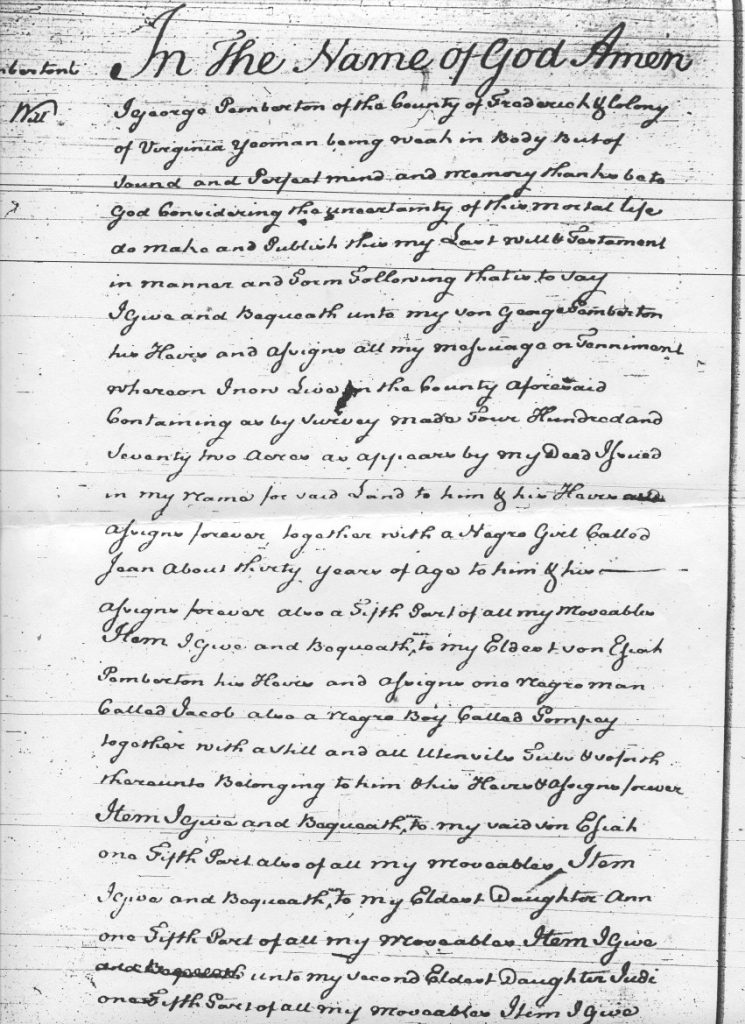 In The Name of God Amen
bertons
Will
I George Pemberton of the County of Frederick & Colony
of Virginia Yeoman being weak in Body But of
Sound and Perfect mind and memory thanks be to
God Considering the uncertainty of this mortal life
do make and Publish this my Last Will & Testament
in manner and Form Following that is to say
I Give and Bequeath unto my son George Pemberton
his Heirs and Assigns all my messuage or Tenniment
whereon I now Live in the County Aforesaid
Containing as by Survey made Four Hundred and
Seventy two Acres as appears by my Deed Issued
in my Name for said Land to him & his Heirs and
Assigns forever, together with a Negro Girl Called
Jean About thirty years of Age to him & his
Assigns forever also a Fifth Part of all my Moveables
Item I Give and Bequeath to my Eldest son Esiah
Pemberton his Heirs and Assigns one Negro man
Called Jacob also a Negro Boy Called Pompey
together with a still and all Utensils Tubs & so forth
thereunto Belonging to him & his Heirs & Assigns forever
Item I Give and Bequeath to my said son Esiah
one Fifth Part also of all my moveables, Item
I Give and Bequeath to my Eldest Daughter Ann
one Fifth Part of all my moveables Item I Give
and Bequeath unto my second Eldest Daughter Judi
one Fifth Part of all my moveables Item I Give